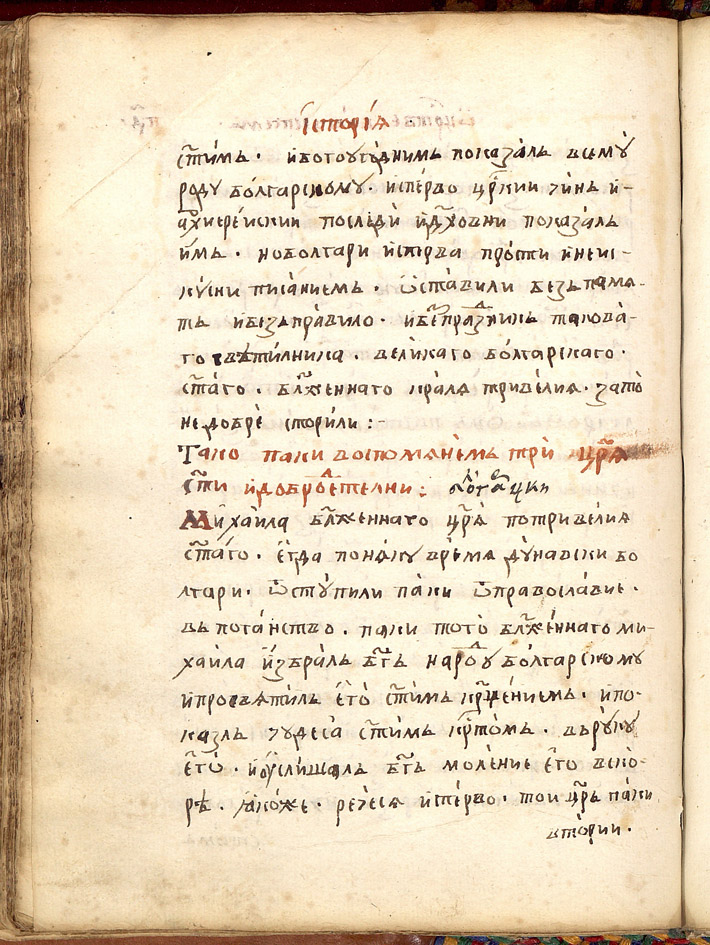 Їсторїѧ
ст҃имъ · и богоугоднимъ показалъ всемꙋ
родꙋ болгарскомꙋ · исперво цр҃кии чинь и-
архиереискии последи и дх҃овни показалъ
имъ · но болгари исперва прости и неис-
кꙋсни писаниемъ · ѿставили безъ памѧ-
ть и безъ правило · и без празникъ такова-
го свѣтилника · великаго болгарскаго ·
ст҃аго · бл҃женнаго кралѧ тривелиѧ · зато
не добре сторили :-
Тако паки воспомѧнемъ три цр҃ѧ
ст҃и и добродетелни :
Михаила бл҃женнаго цр҃ѧ по тривелиѧ
ст҃аго · егда по нѧкꙋ времѧ дꙋнавски бо
лгари · ѿстꙋпили паки ѿ православие ·
въ поганство · паки того бл҃женнаго ми-
хаила избралъ бг҃ъ народꙋ болгарскомꙋ
и просвѧтилъ его ст҃имъ кр҃щениемъ · и по-
казлъ чꙋдеса ст҃имъ крс҃томъ · въ рꙋкꙋ
его · и ꙋслишалъ бг҃ъ моление его вско-
рѣ · ꙗкоже · речесѧ исперво · тои цр҃ъ паки
втории ·